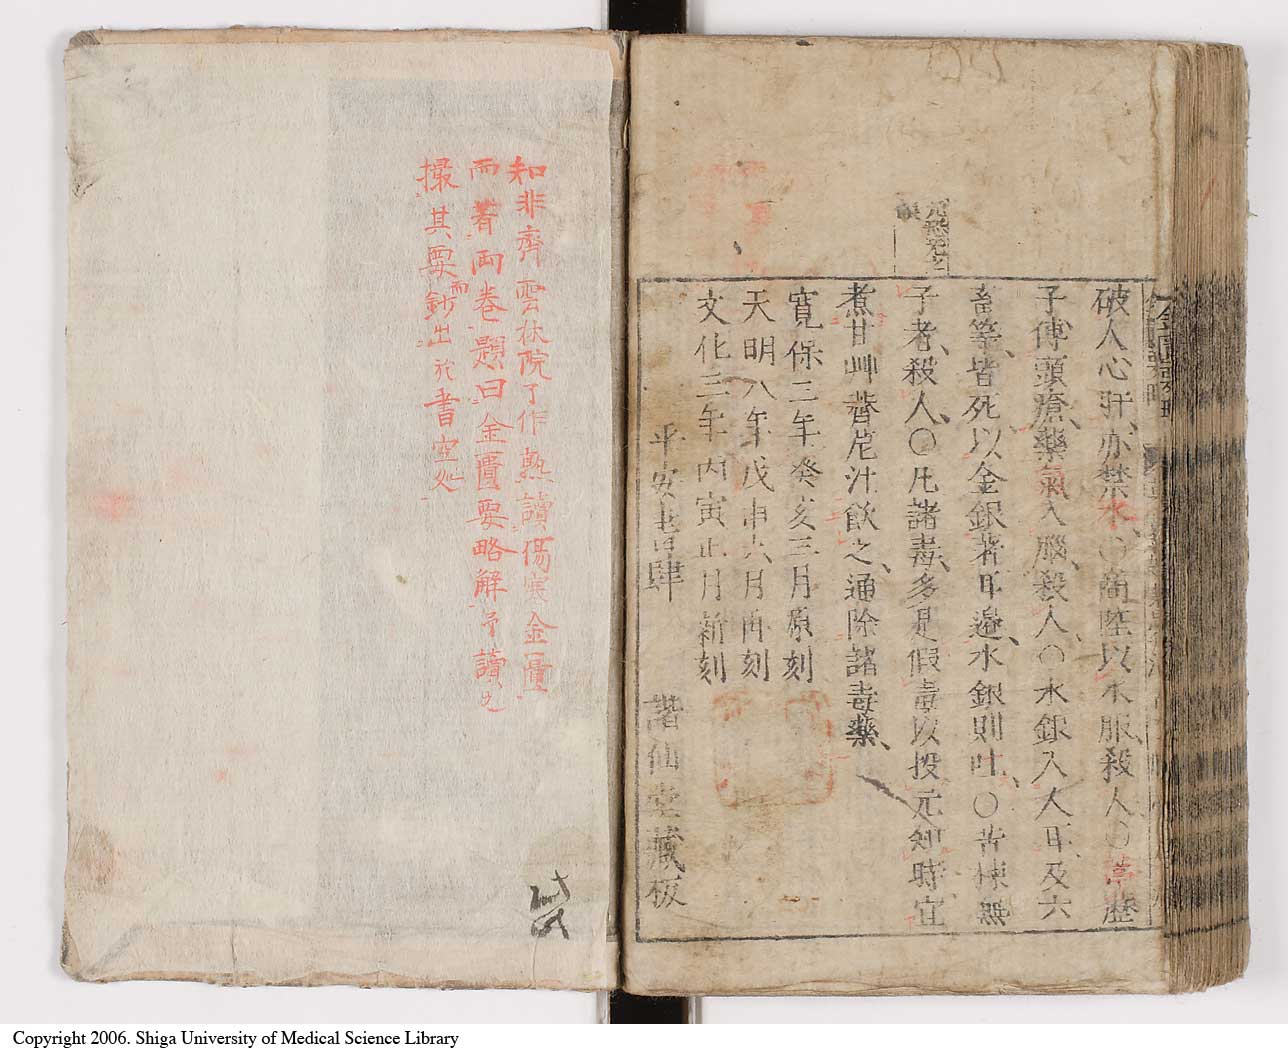 破人心肝亦禁水○商陸以水服殺人○葶歷
子傅頭瘡藥氣入腦殺人○水銀入人耳及六
畜等皆死以金銀著耳邊水銀則吐○苦楝無
子者殺人○凡諸毒多是假毒以投元知時宜
煮甘艸薺苨汁飲之通除諸毒藥
寬保三年癸亥三月原刻
天明八年戊申六月再刻
文化三年丙寅正月新刻
平安書肆 譜仙堂藏板
知非齊雲林院了作熟讀傷寒金匱
而著両卷題曰金匱要略解予讀之
撮其要而鈔出於書空処
Copyright 2006. Shiga University of Medical Science Library